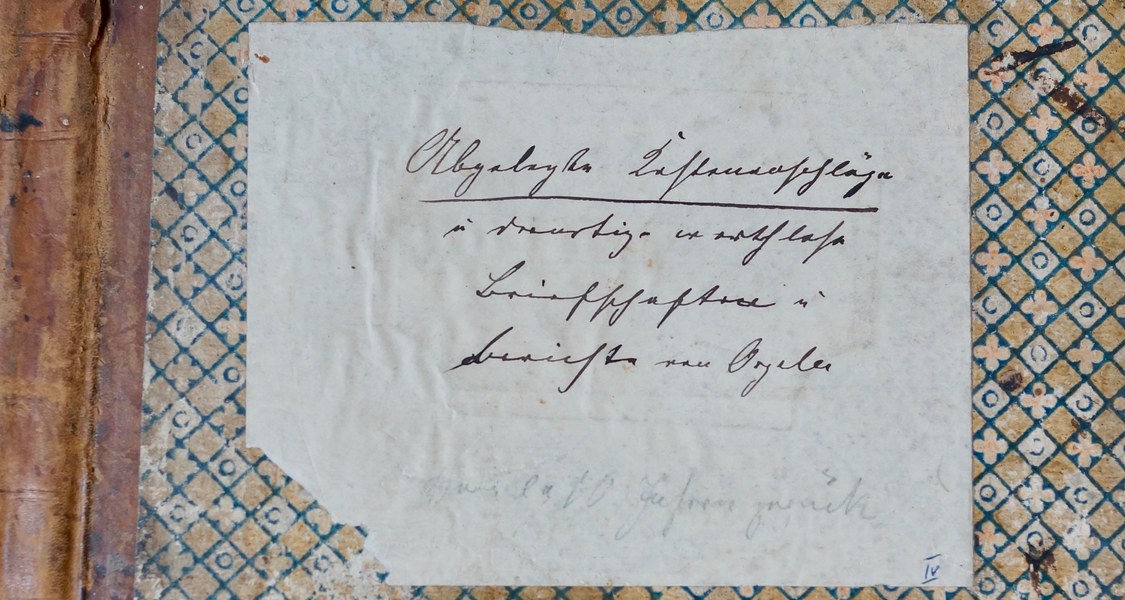 Abgelegte Kostenanschläge
u derartige werthlose
Briefschaften u
Berichte von Orgeln
Jahren zurück
IV